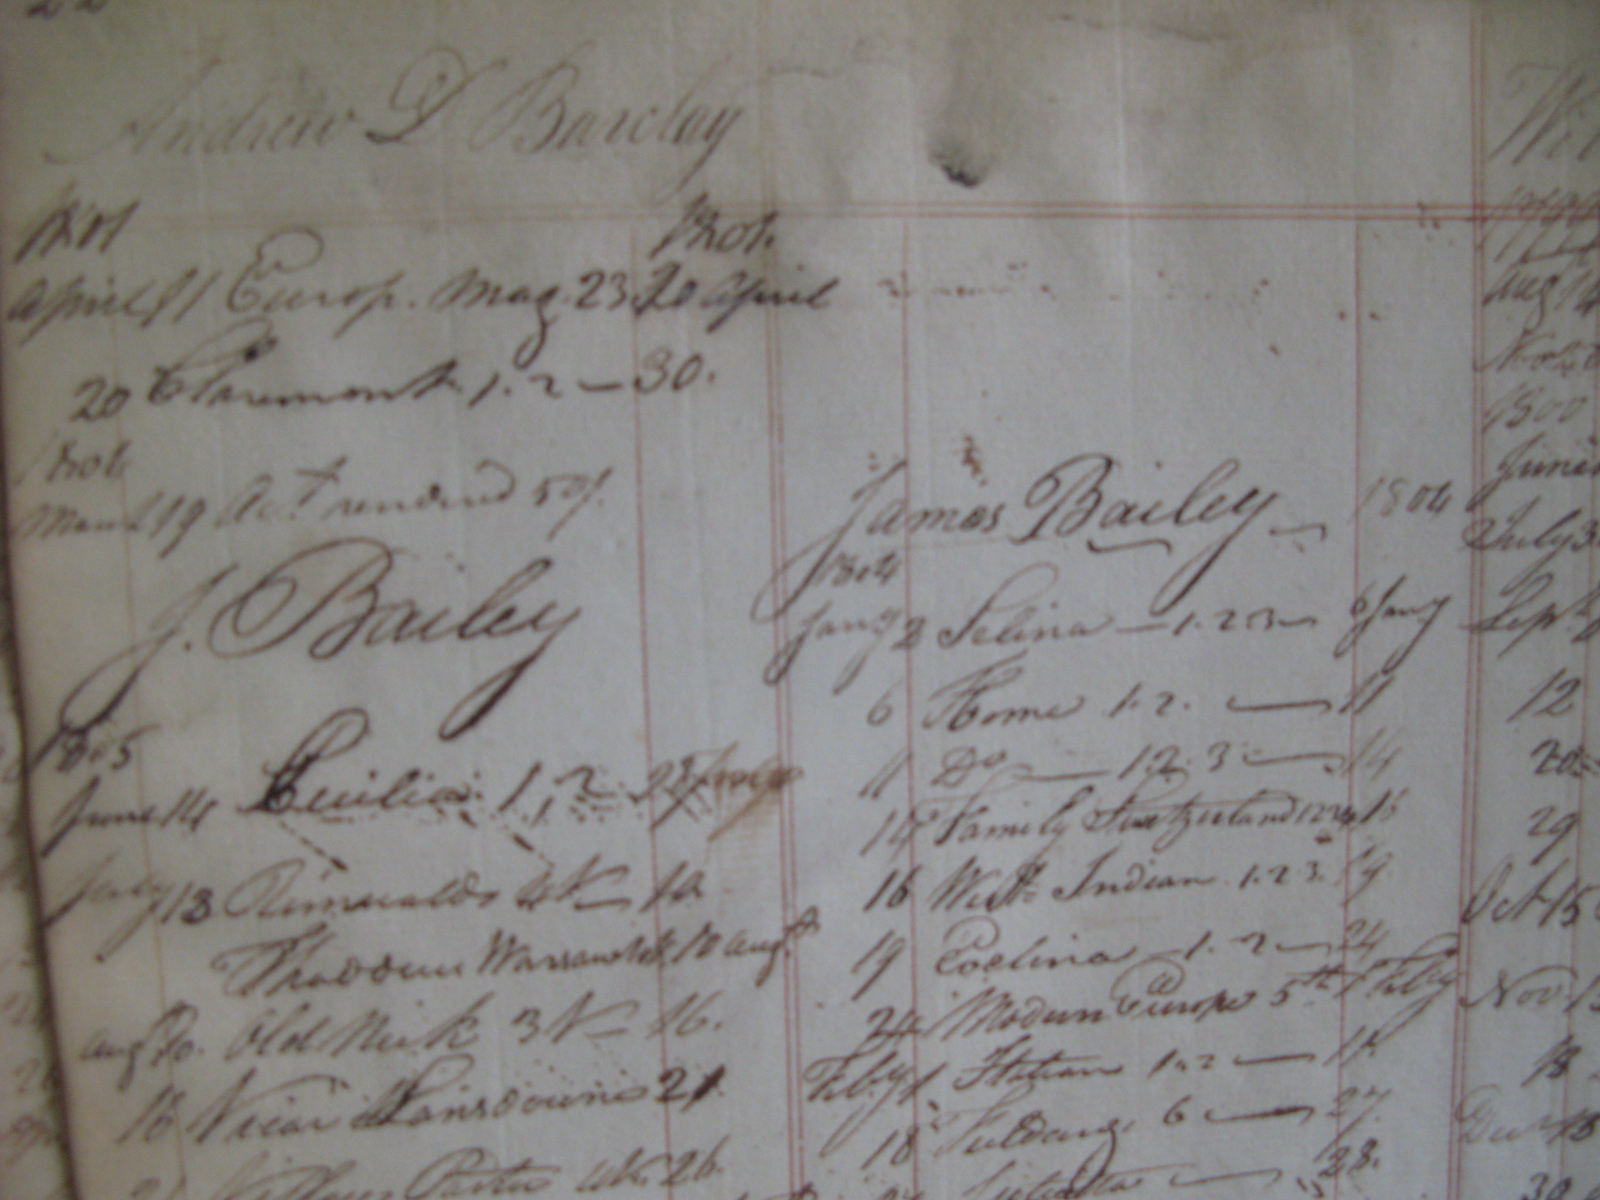 Andrew D Barclay
1801 1801.
April 11 Europ. Mag. 23. 20 April
20 Claremont 1. 2 — 30.
1801
March 19 Act rendered
J. Bailey
1805
June 14 Cecilia 1. 2
July 13 Rimualdo 4 V
Thaddeus Warsaw 10 Augt
Augt 10. Old Nick 3 V — 16.
16 Vicar Lansdowne 21.
26.
James Bailey 1804
1804
Jany 2 Selina — 1. 2 3 — 6 Jany
6 Home 1. 2. — 11
11 Do — 1. 2. 3 — 14
14 Family Switzerland 16
16 West Indian 1. 2 3. 19.
19 Coelina — 1. 2 — 24
24 Modern Europe 5th 1 Feby
Feby 1. Italian 1. 2 — 18.
18 6 — 27.
28.
1799
Aug 14
1800
June
July 3
Sept
12
20
29
Oct 15
Nov 13
18